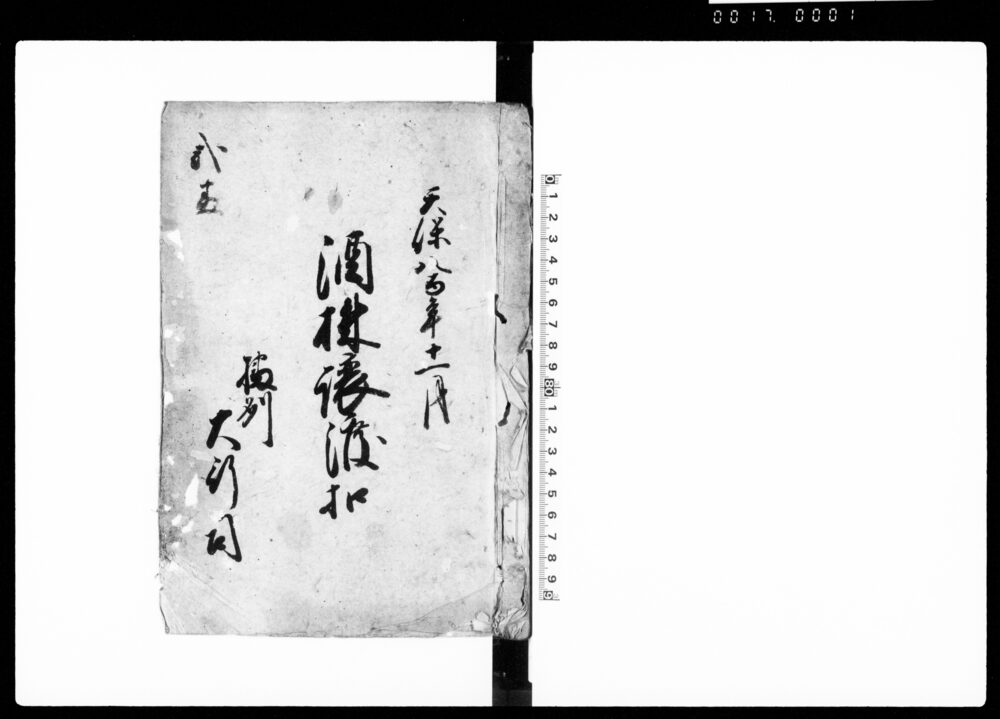 0017.0001
天保八酉年十一月
酒株譲渡扣
摂州
大行司
0 1 2 3 4 5 6 7 8 9 1 2 3 4 5 6 7 8 9